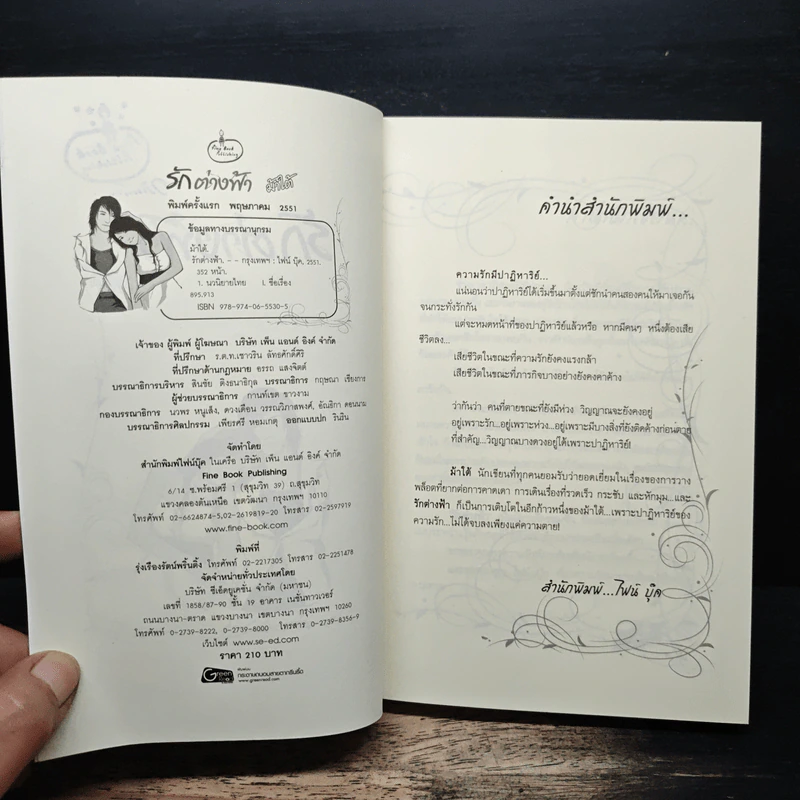 Fine Book
Publishing
รักต่างฟ้า ม้าใต้
พิมพ์ครั้งแรก พฤษภาคม 2551
ข้อมูลทางบรรณานุกรม
ม้าใต้.
รักต่างฟ้า. - - กรุงเทพฯ : ไฟน์ บุ๊ค, 2551.
352 หน้า.
1. นวนิยายไทย I. ชื่อเรื่อง
895.913
ISBN 978-974-06-5530-5
เจ้าของ ผู้พิมพ์ ผู้โฆษณา บริษัท เพ็น แอนด์ อิงค์ จำกัด
ที่ปรึกษา ร.ต.ท.เชาวริน ลัทธศักดิ์ศิริ
ที่ปรึกษาด้านกฎหมาย อรรถ แสงจิตต์
บรรณาธิการบริหาร สินชัย ติงธนาธิกุล บรรณาธิการ กฤษณา เชียงการ
ผู้ช่วยบรรณาธิการ กานท์เขต ชาวงาม
กองบรรณาธิการ นวพร หนูเส็ง, ดวงเดือน วรรณวิภาสพงศ์, อัณธิกา คอนนาม
บรรณาธิการศิลปกรรม เพียรศรี หอมเกตุ ออกแบบปก รินริน
จัดทำโดย
สำนักพิมพ์ไฟน์บุ๊ค ในเครือ บริษัท เพ็น แอนด์ อิงค์ จำกัด
Fine Book Publishing
6/14 ซ.พร้อมศรี 1 (สุขุมวิท 39) ถ.สุขุมวิท
แขวงคลองตันเหนือ เขตวัฒนา กรุงเทพฯ 10110
โทรศัพท์ 02-6624874-5,02-2619819-20 โทรสาร 02-2597919
www.fine-book.com
พิมพ์ที่
รุ่งเรืองรัตน์พริ้นติ้ง โทรศัพท์ 02-2217305 โทรสาร 02-2251478
จัดจำหน่ายทั่วประเทศโดย
บริษัท ซีเอ็ดยูเคชั่น จำกัด (มหาชน)
เลขที่ 1858/87-90 ชั้น 19 อาคาร เนชั่นทาวเวอร์
ถนนบางนา-ตราด แขวงบางนา เขตบางนา กรุงเทพฯ 10260
โทรศัพท์ 0-2739-8222, 0-2739-8000 โทรสาร 0-2739-8356-9
เว็บไซต์ www.se-ed.com
ราคา 210 บาท
Green
กระดาษถนอมสายตากรีนรี้ด
www.greenread.com
คำนำสำนักพิมพ์...
ความรักมีปาฏิหาริย์...
แน่นอนว่าปาฏิหาริย์ได้เริ่มขึ้นมาตั้งแต่ชักนำคนสองคนให้มาเจอกัน
จนกระทั่งรักกัน
แต่จะหมดหน้าที่ของปาฏิหาริย์แล้วหรือ หากมีคนๆ หนึ่งต้องเสีย
ชีวิตลง...
เสียชีวิตในขณะที่ความรักยังคงแรงกล้า
เสียชีวิตในขณะที่ภารกิจบางอย่างยังคงคาค้าง
ว่ากันว่า คนที่ตายขณะที่ยังมีห่วง วิญญาณจะยังคงอยู่
อยู่เพราะรัก...อยู่เพราะห่วง...อยู่เพราะมีบางสิ่งที่ยังติดค้างก่อนตาย
ที่สำคัญ...วิญญาณบางดวงอยู่ได้เพราะปาฏิหาริย์!
ม้าใต้ นักเขียนที่ทุกคนยอมรับว่ายอดเยี่ยมในเรื่องของการวาง
พล็อตที่ยากต่อการคาดเดา การเดินเรื่องที่รวดเร็ว กระชับ และหักมุม...และ
รักต่างฟ้า ก็เป็นการเติบโตในอีกก้าวหนึ่งของม้าใต้...เพราะปาฏิหาริย์ของ
ความรัก...ไม่ได้จบลงเพียงแค่ความตาย!
สำนักพิมพ์...ไฟน์ บุ๊ค